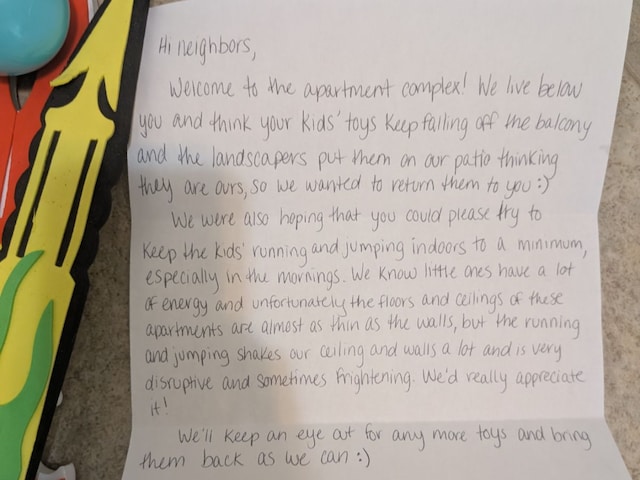 Hi neighbors,
Welcome to the apartment complex! We live below
you and think your kids' toys keep falling off the balcony
and the landscapers put them on our patio thinking
they are ours, so we wanted to return them to you :)
We were also hoping that you could please try to
keep the kids' running and jumping indoors to a minimum,
especially in the mornings. We know little ones have a lot
of energy and unfortunately the floors and ceilings of these
apartments are almost as thin as the walls, but the running
and jumping shakes our ceiling and walls a lot and is very
disruptive and sometimes frightening. We'd really appreciate
it!
We'll keep an eye out for any more toys and bring
them back as we can :)